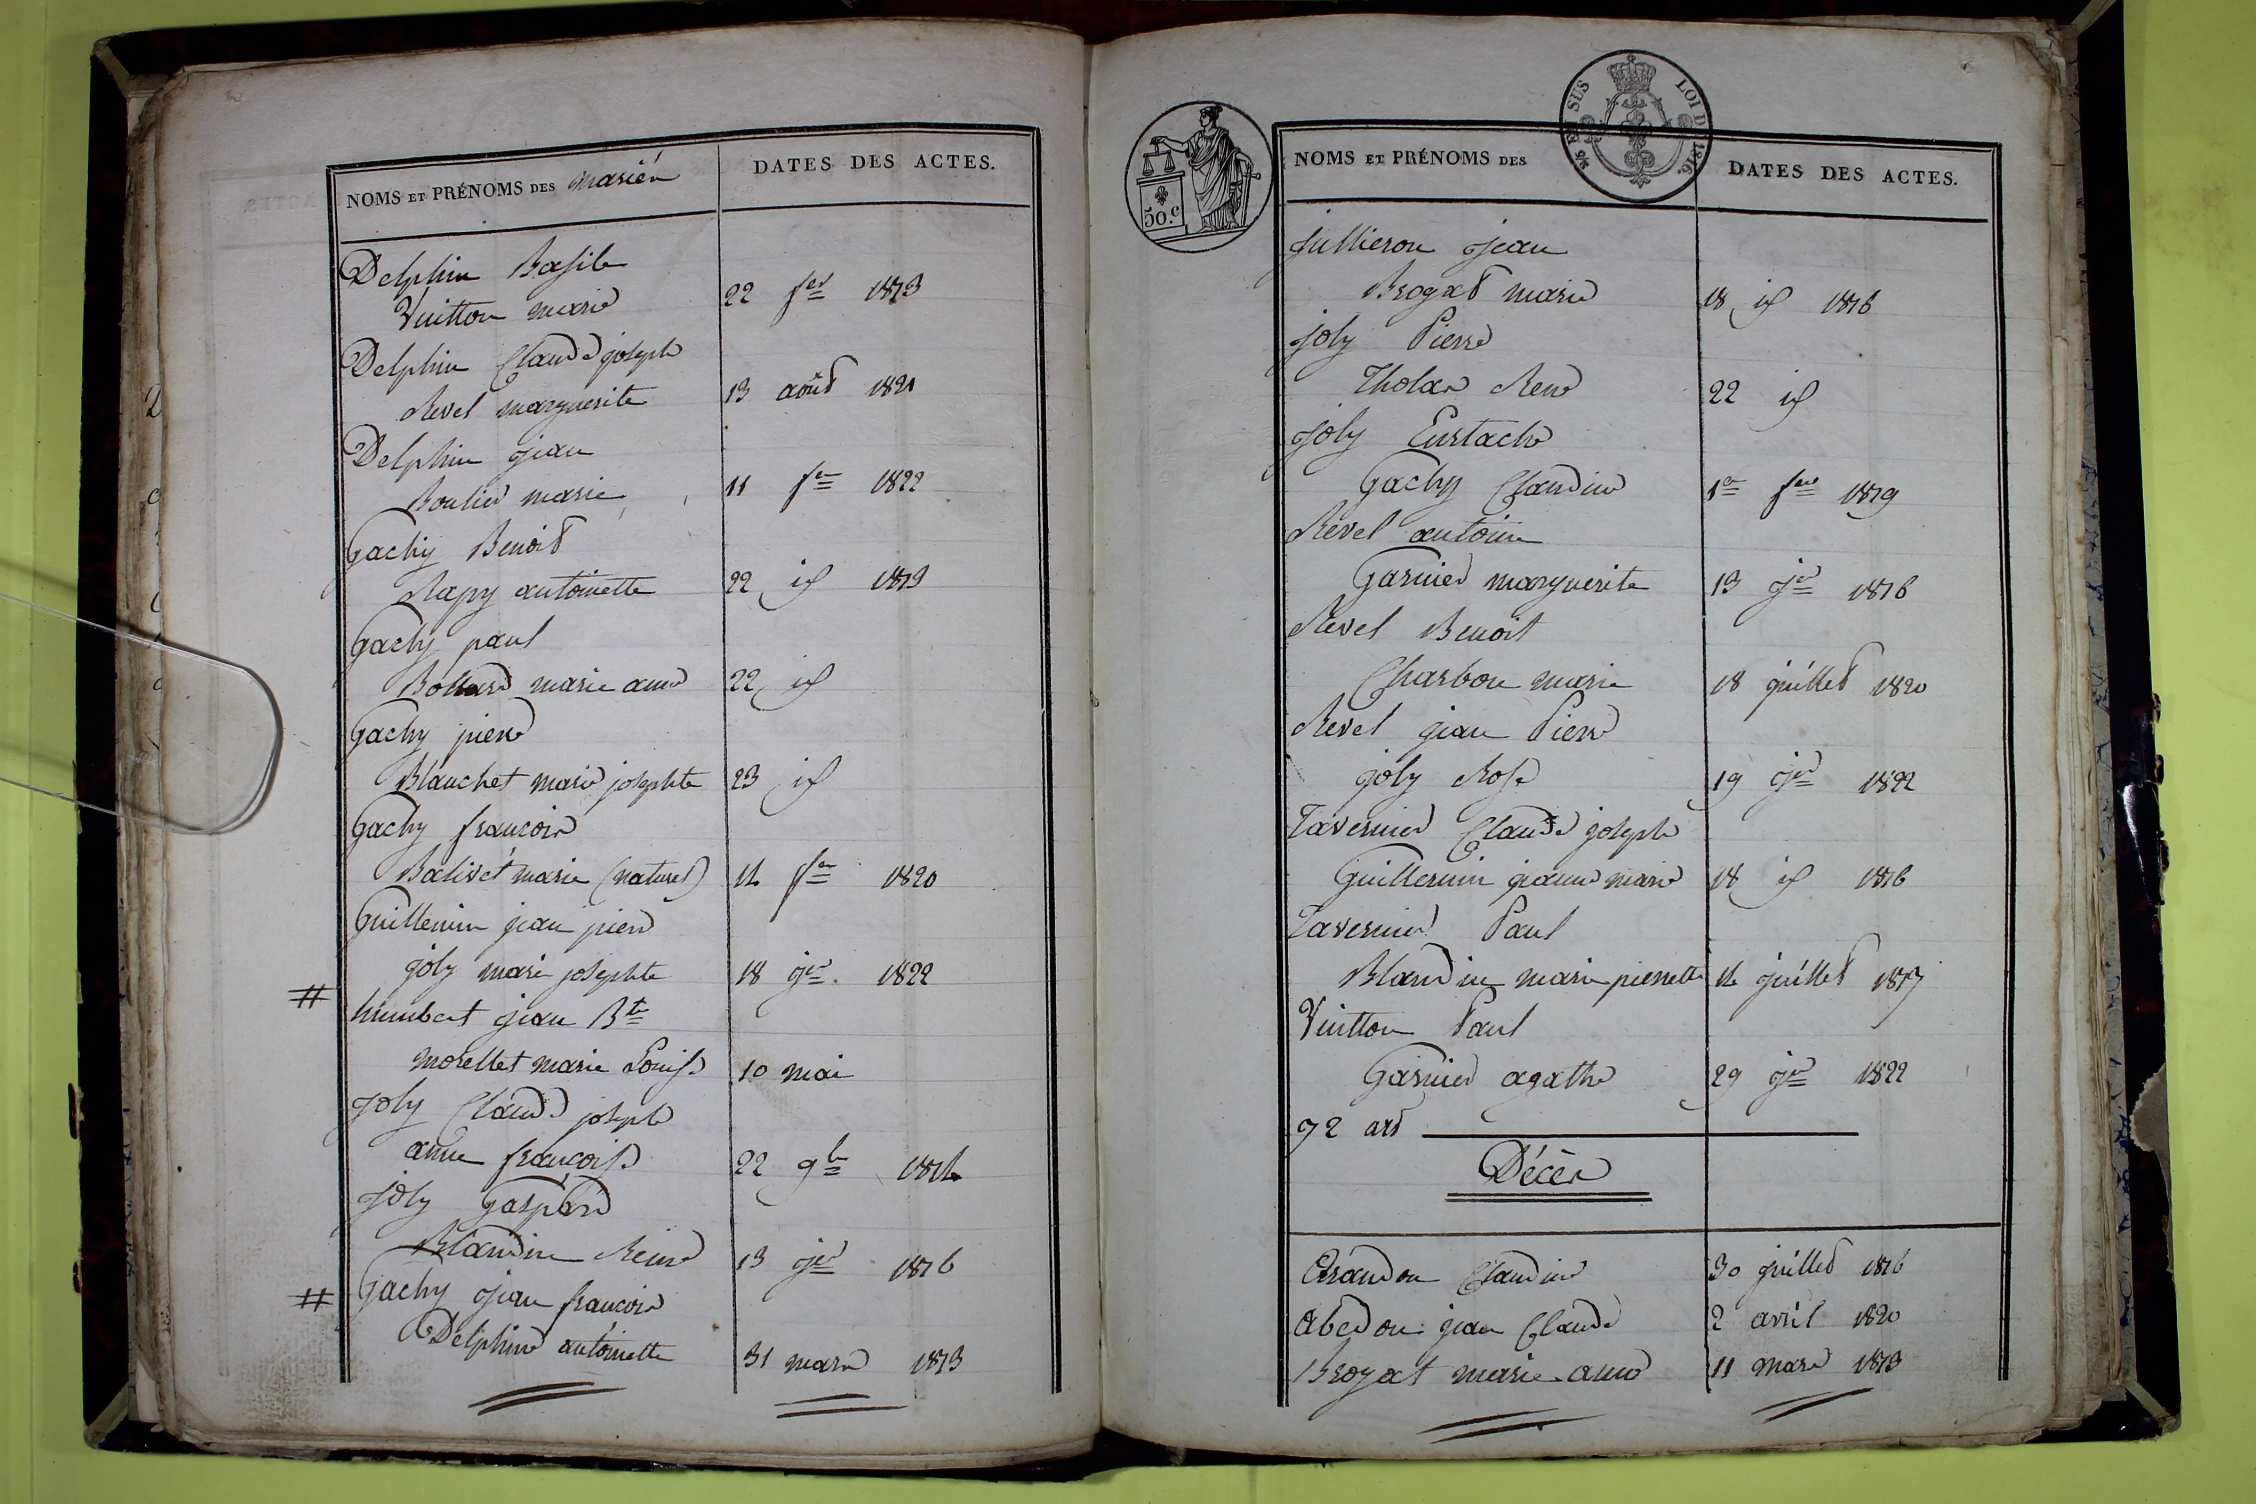 NOMS ET PRÉNOMS DES mariés
DATES DES ACTES.
Delphin Basile
Vuitton marie 22 fer 1813
Delphin Claude joseph
Revel marguerite 13 août 1821
Delphin jean
Boulier marie 11 fer 1822
Gachy Benoit
Rapy antoinette 22 id 1813
Gachy paul
Bollard marie anne 22 id
Gachy pierre
Blanchet marie josephte 23 id
Gachy françois
Balivet marie (naturel) 14 fer 1820
Guillemin jean pierre
joly marie josephte 18 jer 1822
#
humbert jean Bte
morellet marie Louise 10 mai
Joly Claude joseph
anne françoise 22 9bre 1814
Joly Gaspard
Blandin Reine 13 jer 1816
#
Gachy jean françois
Delphine antoinette 31 mars 1813
50.c
LOI DE 1816.
NOMS ET PRÉNOMS DES
DATES DES ACTES.
Jullieron jean
Brogat marie 18 id 1816
joly Pierre
Tholas Reine 22 id
joly Eustache
Gachy Claudine 1er fer 1819
Revel antoine
Garnier marguerite 13 jer 1816
Revel Benoit
Charbon marie 18 juillet 1820
Revel jean Pierre
joly Rose 19 jer 1822
Tavernier Claude joseph
Guillermin jeanne marie 18 id 1816
Tavernier Paul
Blandin marie pierrette 14 juillet 1817
Vuitton Paul
Garnier agathe 29 jer 1822
72 art
Décès
Claudine 30 juillet 1816
Abedon jean Claude 2 avril 1820
Broyat marie anne 11 mars 1813